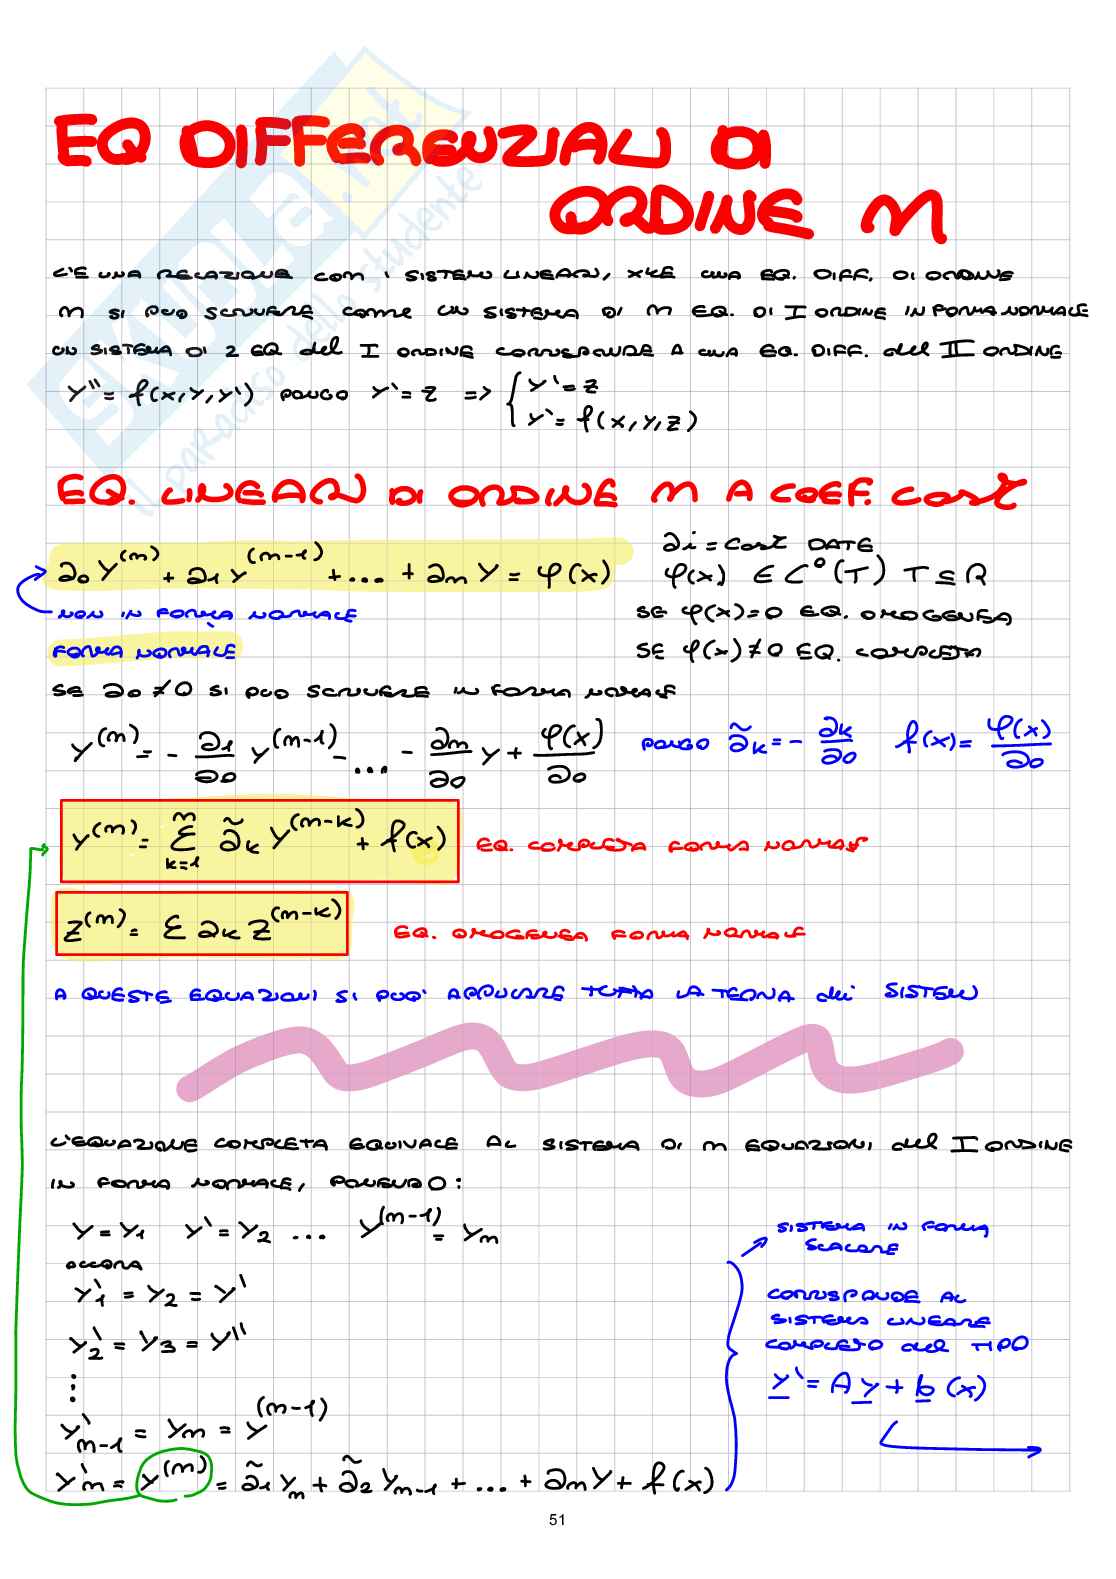 EQ DIFFERENZIALI DI
ORDINE M
C'È UNA RELAZIONE COM I SISTEMI LINEARI, XKÈ UNA EQ. DIFF. DI ORDINE
M SI PUO SCRIVERE COME UN SISTEMA DI M EQ. DI I ORDINE IN FORMA NORMALE
UN SISTEMA DI 2 EQ del I ORDINE CORRISPONDE A UNA EQ. DIFF. del II ORDINE
y'' = f(x,y,y') PONGO y' = z => { y' = z
y' = f(x,y,z)
EQ. LINEARI DI ORDINE M A COEF. COST
a₀ y⁽ᵐ⁾ + a₁ y⁽ᵐ⁻¹⁾ + ... + aₘ y = φ(x)
ai = COST DATE
φ(x) ∈ C⁰(T) T ⊆ R
NON IN FORMA NORMALE
SE φ(x)=0 EQ. OMOGENEA
FORMA NORMALE
SE φ(x)≠0 EQ. COMPLETA
SE a₀ ≠ 0 SI PUO SCRIVERE IN FORMA NORMALE
y⁽ᵐ⁾ = - a₁/a₀ y⁽ᵐ⁻¹⁾ - ... - aₘ/a₀ y + φ(x)/a₀ PONGO ãₖ = - aₖ/a₀ f(x) = φ(x)/a₀
y⁽ᵐ⁾ = Σ (k=1, m) ãₖ y⁽ᵐ⁻ᵏ⁾ + f(x) EQ. COMPLETA FORMA NORMALE
z⁽ᵐ⁾ = Σ aₖ z⁽ᵐ⁻ᵏ⁾ EQ. OMOGENEA FORMA NORMALE
A QUESTE EQUAZIONI SI PUO' APPLICARE TUTTA LA TEORIA dei SISTEMI
L'EQUAZIONE COMPLETA EQUIVALE AL SISTEMA DI M EQUAZIONI del I ORDINE
IN FORMA NORMALE, PONENDO:
y = y₁ y' = y₂ ... y⁽ᵐ⁻¹⁾ = yₘ
SISTEMA IN FORMA
SCALARE
ALLORA
y₁' = y₂ = y'
y₂' = y₃ = y''
⋮
y'ₘ₋₁ = yₘ = y⁽ᵐ⁻¹⁾
y'ₘ = y⁽ᵐ⁾ = ã₁ yₘ + ã₂ yₘ₋₁ + ... + aₘ y + f(x)
CORRISPONDE AL
SISTEMA LINEARE
COMPLETO del TIPO
y' = A y + b (x)
51
SKUOLA.net
il paradiso dello studente